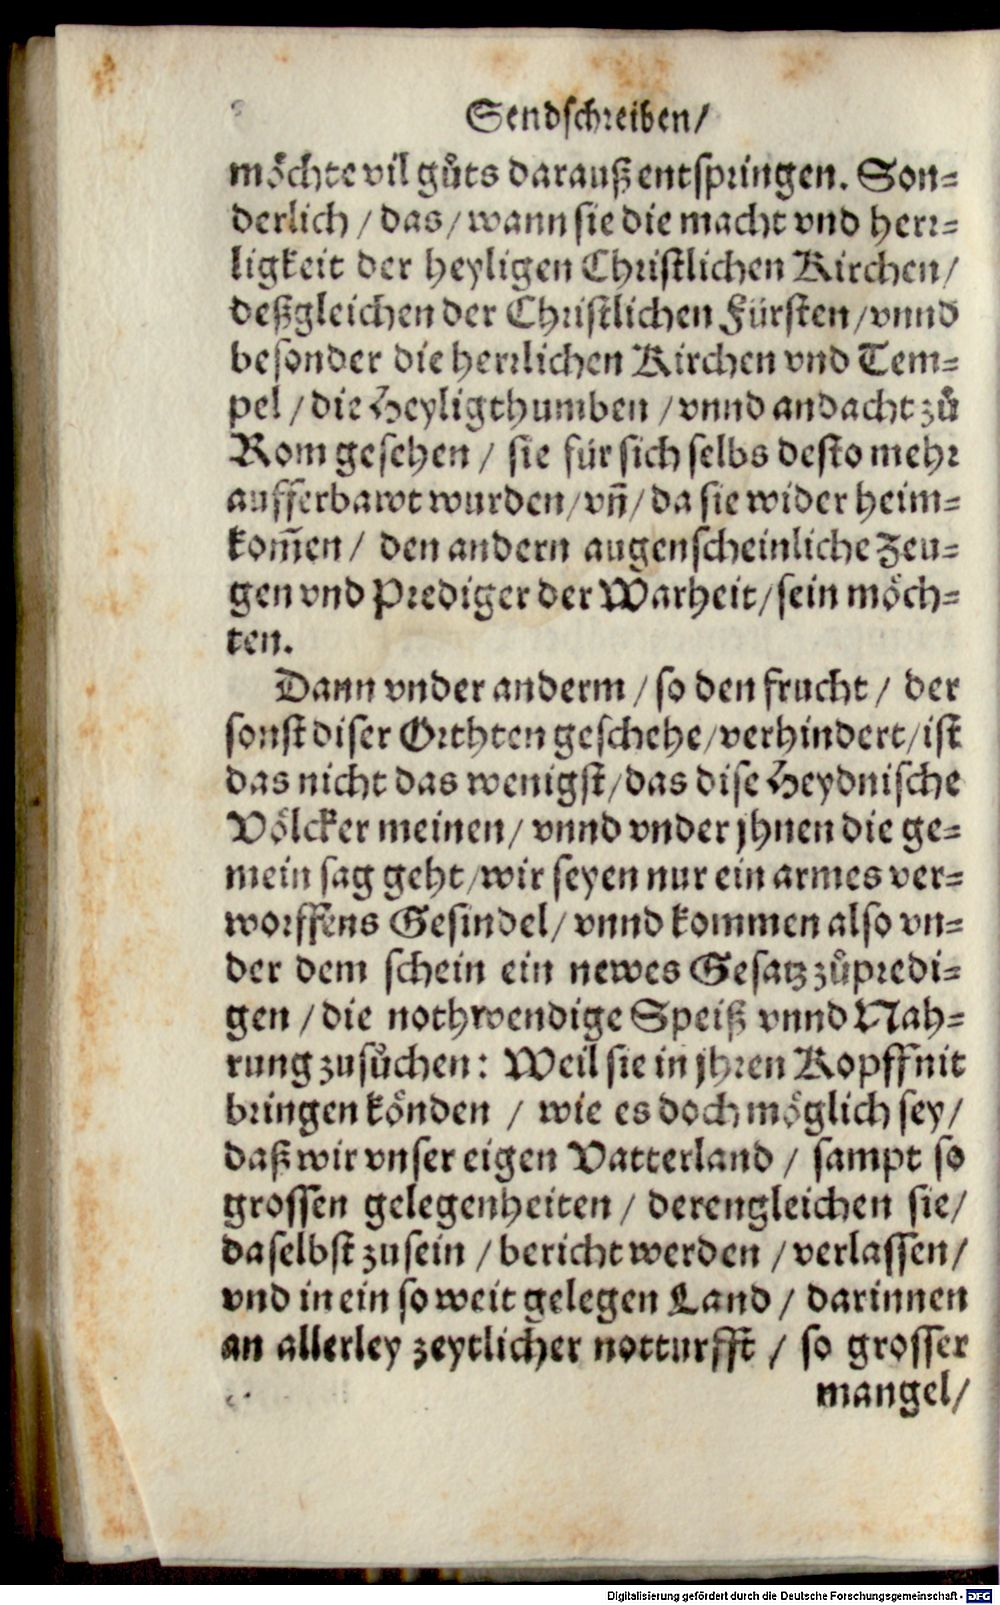 Sendschreiben/
möchte vil gůts darauß entspringen. Son=
derlich / das / wann sie die macht vnd herr=
ligkeit der heyligen Christlichen Kirchen/
deßgleichen der Christlichen Fürsten / vnnd
besonder die herrlichen Kirchen vnd Tem=
pel / die Heyligthumben / vnnd andacht zů
Rom gesehen / sie für sich selbs desto mehr
aufferbawt wurden / vñ / da sie wider heim=
kom̃en / den andern augenscheinliche Zeu=
gen vnd Prediger der Warheit / sein möch=
ten.
Dann vnder anderm / so den frucht / der
sonst diser Orthten geschehe / verhindert / ist
das nicht das wenigst / das dise Heydnische
Völcker meinen / vnnd vnder jhnen die ge=
mein sag geht / wir seyen nur ein armes ver=
worffens Gesindel / vnnd kommen also vn=
der dem schein ein newes Gesatz zůpredi=
gen / die nothwendige Speiß vnnd Nah=
rung zusůchen: Weil sie in jhren Kopff nit
bringen könden / wie es doch möglich sey /
daß wir vnser eigen Vatterland / sampt so
grossen gelegenheiten / derengleichen sie /
daselbst zu sein / bericht werden / verlassen /
vnd in ein so weit gelegen Land / darinnen
an allerley zeytlicher notturfft / so grosser
mangel/
Digitalisierung gefördert durch die Deutsche Forschungsgemeinschaft - DFG